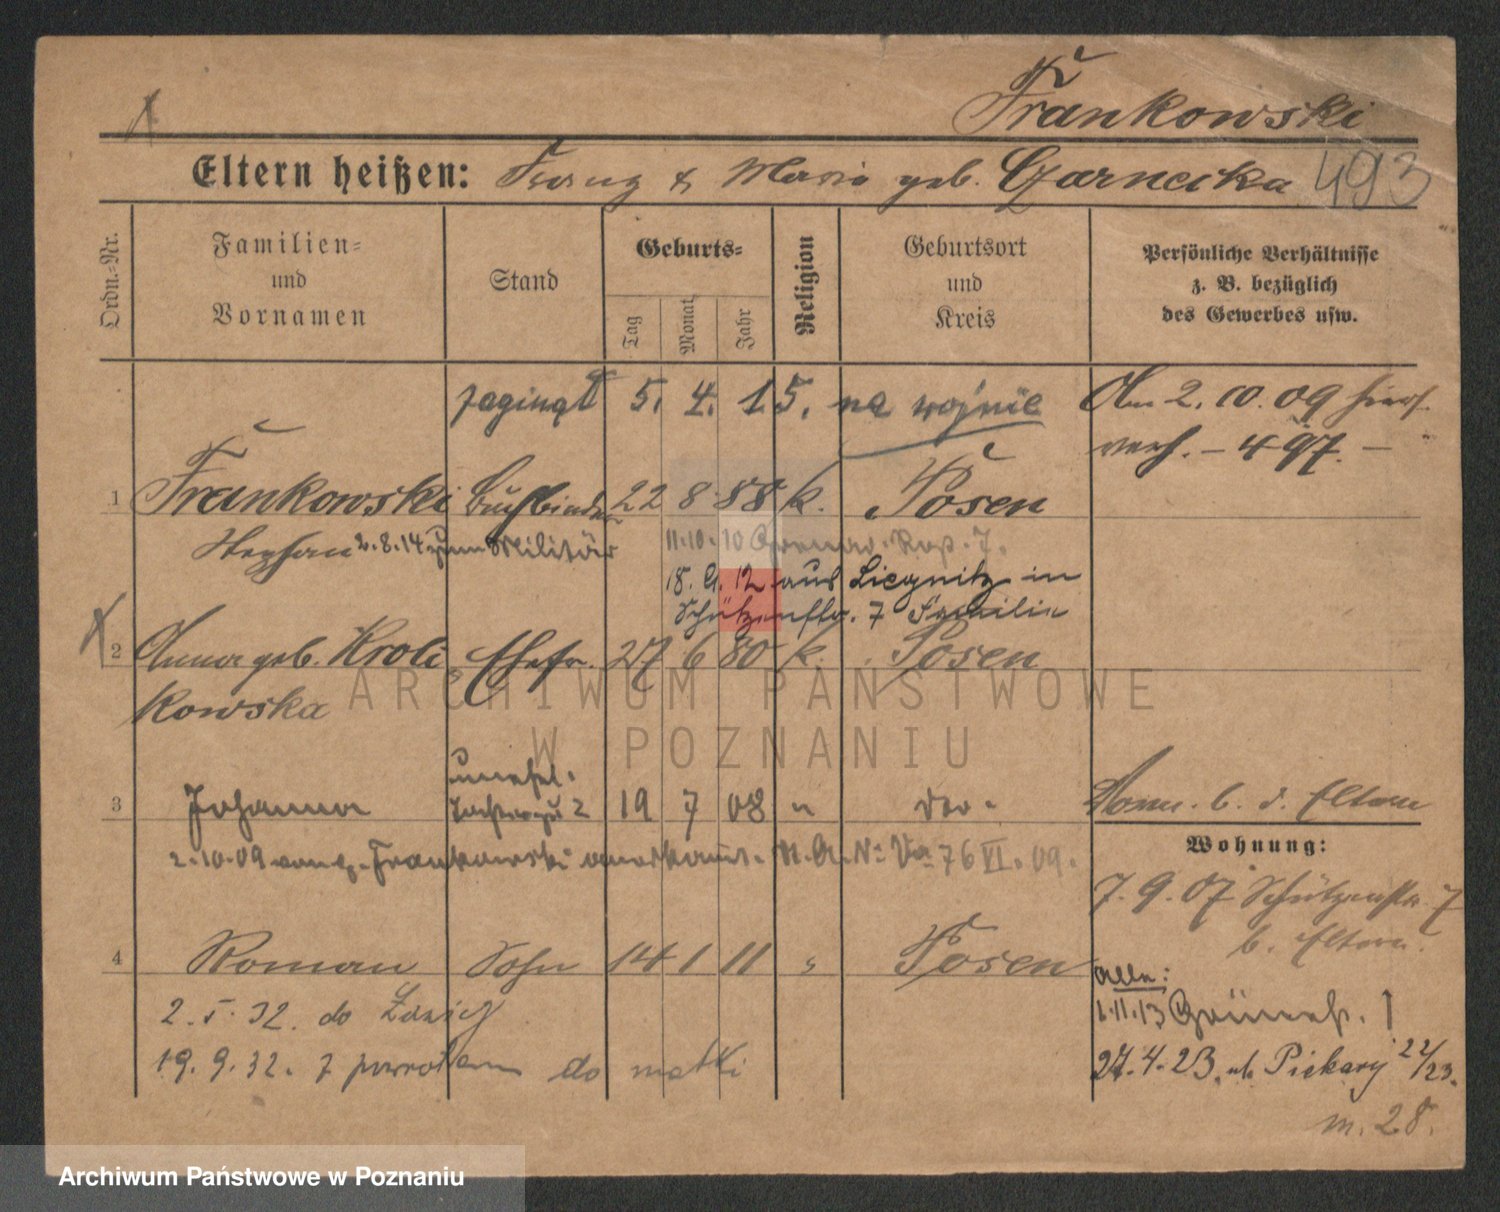 Frankowski
Eltern heißen: Franz & Maria geb. Czarnecka 493
Ordn.-Nr.
Familien- und Vornamen
Stand
Geburts-
Tag
Monat
Jahr
Religion
Geburtsort und Kreis
Persönliche Verhältnisse z. B. bezüglich des Gewerbes usw.
zaginął 5. 4. 15. na wojnie
Am 2. 10. 09 hier
verh. – 497. –
1 Frankowski Buchbinder 22 8 88 k. Posen
Stephan 2.8.14 zum Militär
11.10.10 7.
18. 9. 12 aus Liegnitz in
Schützenstr. 7 Familie
2 Anna geb. Kroli Ehefr. 27 6 80 k. Posen
kowska
ARCHIWUM PAŃSTWOWE
W POZNANIU
unehel.
3 Johanna Tochter zu 2 19 7 08 " do. b. d. Eltern
2.10.09 von Frankowski anerkannt. 76 VI. 09.
Wohnung:
7. 9. 07 Schützenstr. 7
b. Eltern.
4 Roman Sohn 14 1 11 " Posen
alle:
2. 5. 32. do
1.11.13 1
19. 9. 32. z powrotem do matki
27. 4. 23. ul. Piekary 22/23.
m. 28.
Archiwum Państwowe w Poznaniu